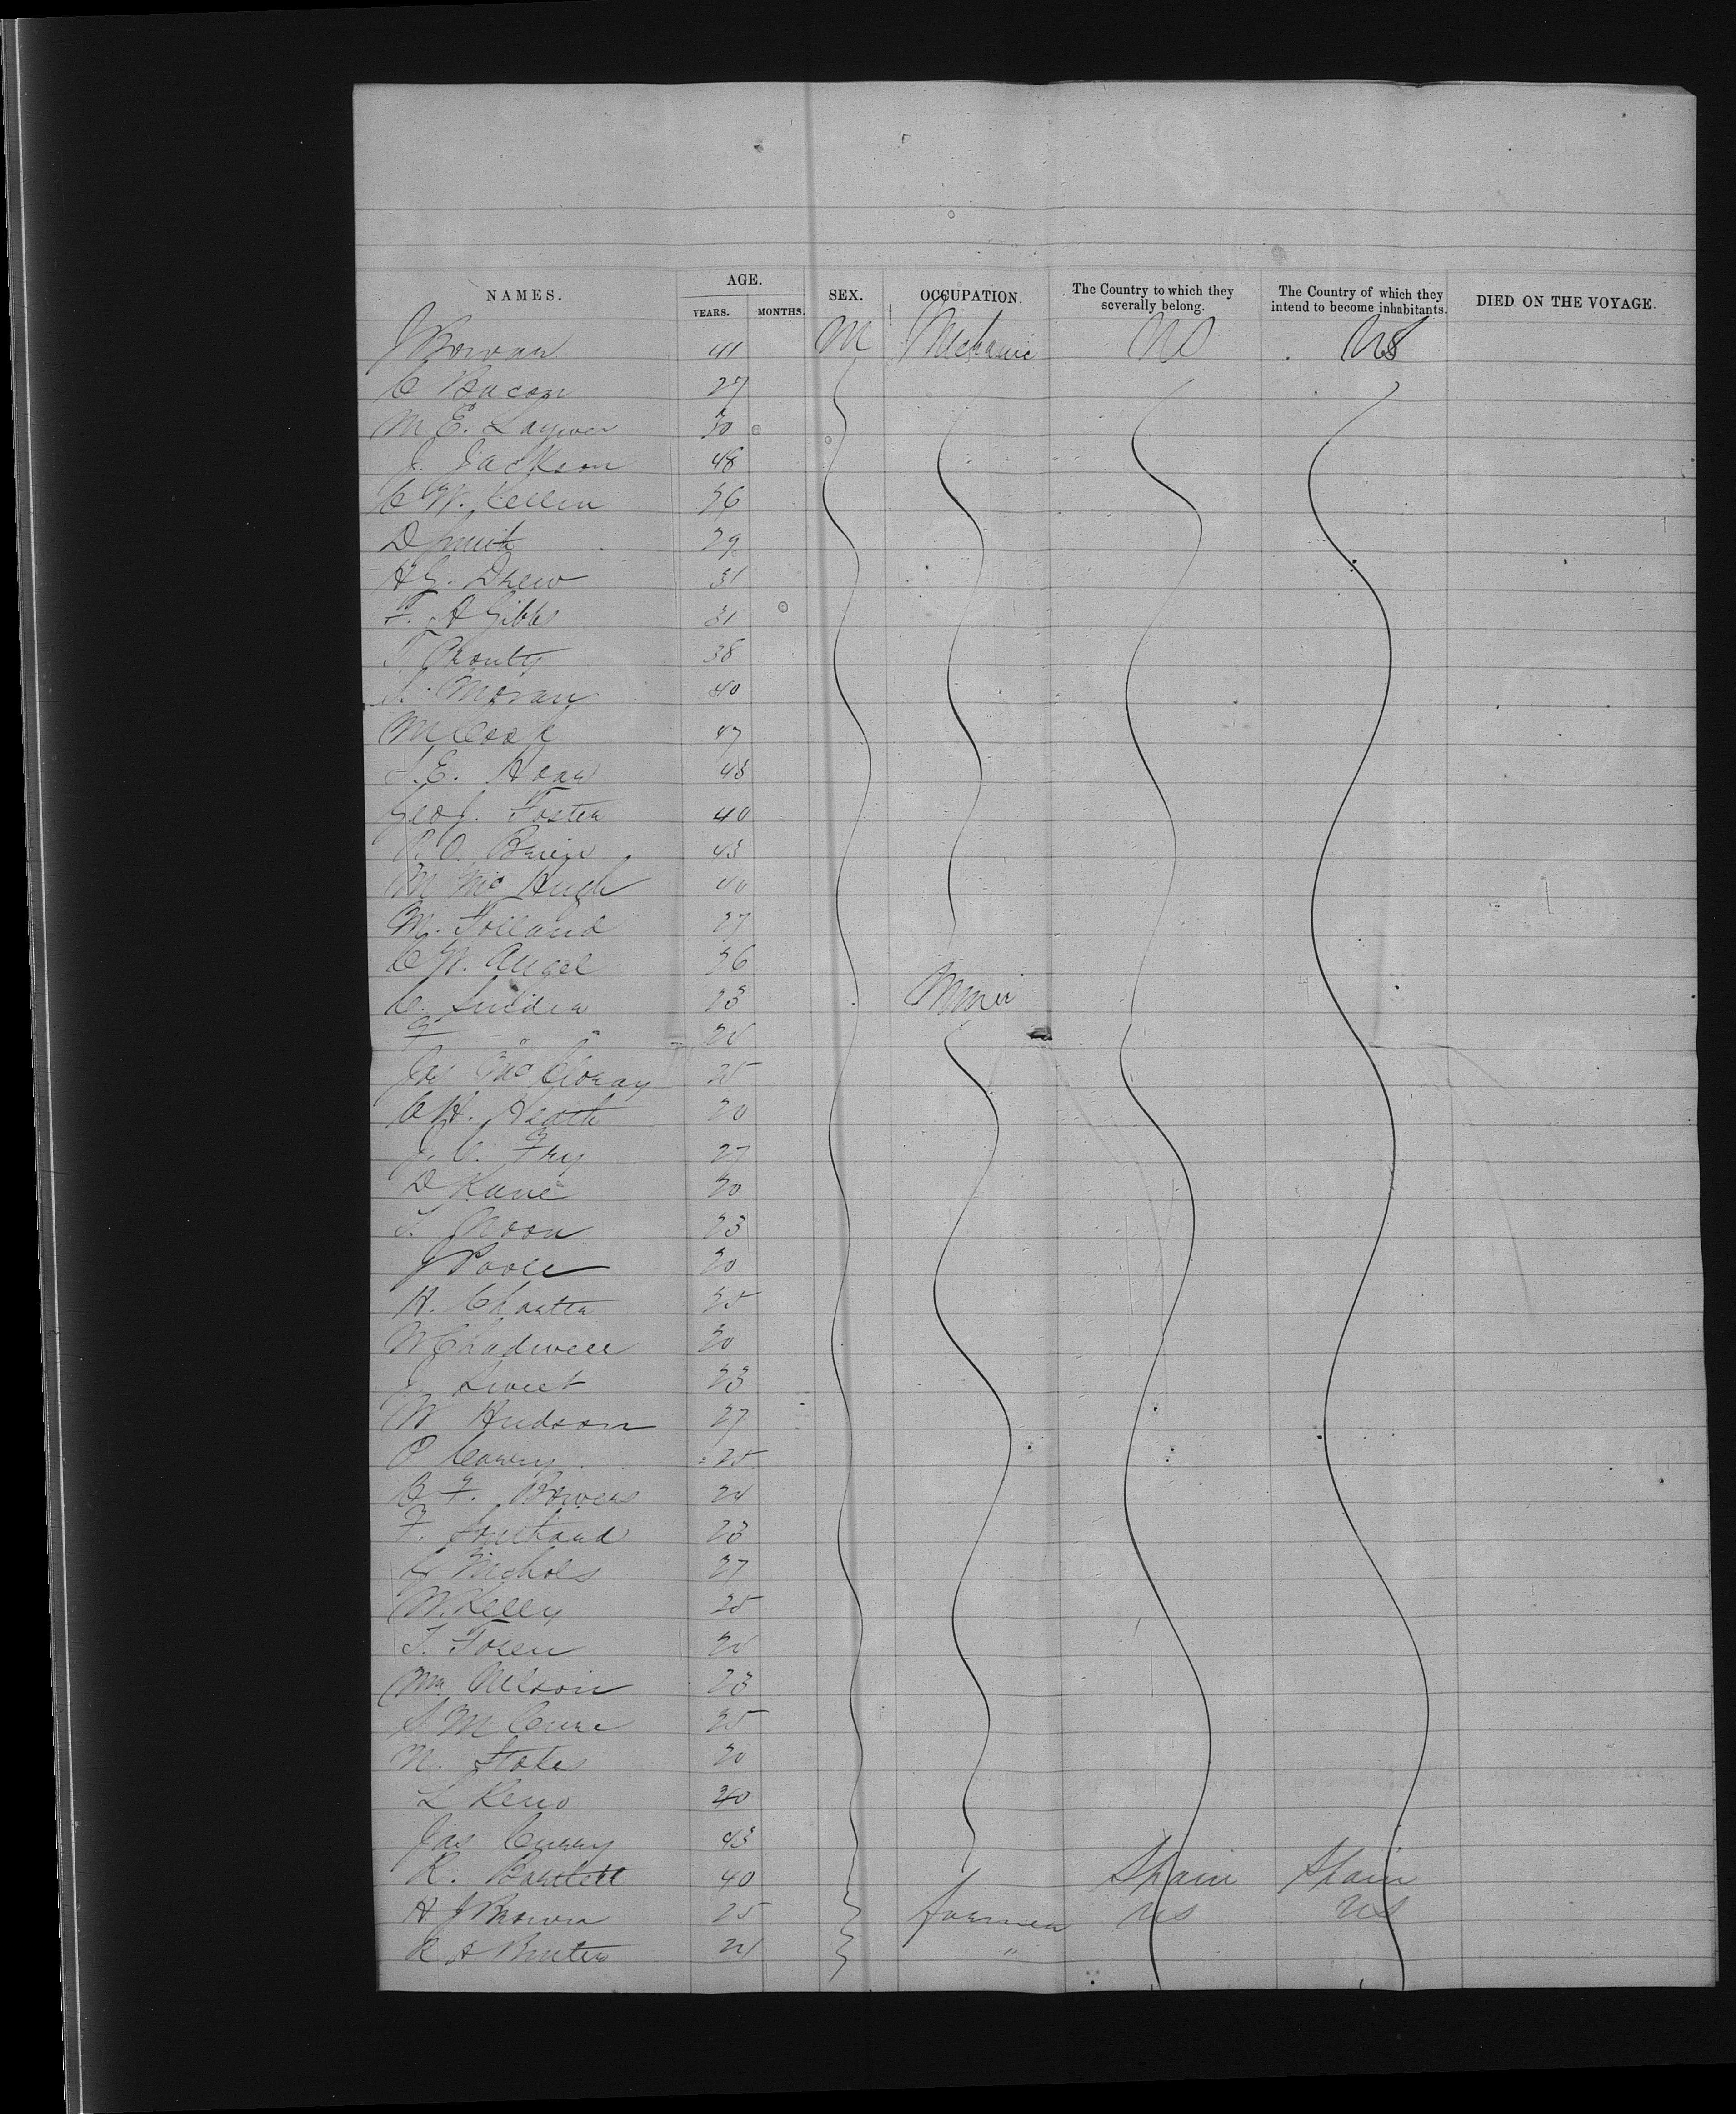 NAMES. AGE. SEX. OCCUPATION. The Country to which they severally belong. The Country of which they intend to become inhabitants. DIED ON THE VOYAGE.
YEARS. MONTHS.
J Bowan 41 M Mechanic US US
C Bacon 27
M E. 30
J. Jackson 48
C W. Kellin 36
D Smith 29
H G. Drew 31
F. A Gibbs 31
T. Prouty 38
S. Moran 40
M Cook 47
S. E. Hoar 43
Geo J. Foster 40
P. O. Brien 43
M Mc Hugh 40
M. Tolland 27
C W. Angel 36
C. 23 Miner
F " "
Jas Mc 25
C H. Heath 20
J. C. Fry 27
D Kane 30
T. Moon 23
J Poole 30
H. 25
W Chadwell 30
J Sweet 23
W Hudson 27
P Carey 25
C F. Bowers 24
F. Southard 23
C Nichols 27
W. Kelly 25
T. Foren
Wm Nelson 23
S M Cune 25
N. Stokes 30
L Keno 40
Jas Curry 43
R. Bartlett 40 Spain Spain
H J Brown 25 farmer US US
R A 24 "